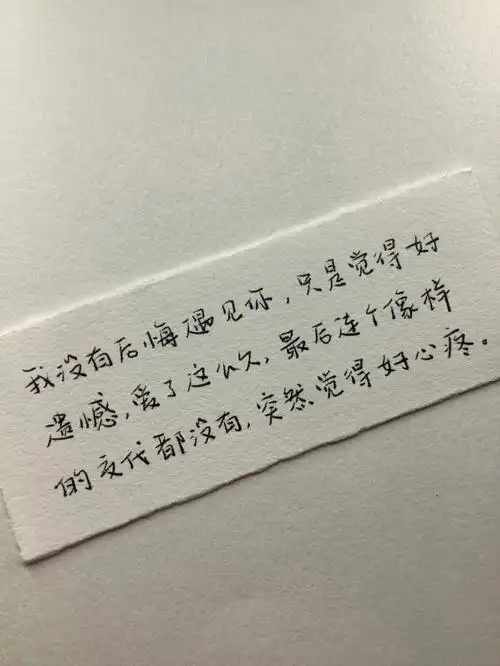 我没有后悔遇见你，只是觉得好
遗憾，爱了这么久，最后连个像样
的交代都没有，突然觉得好心疼。